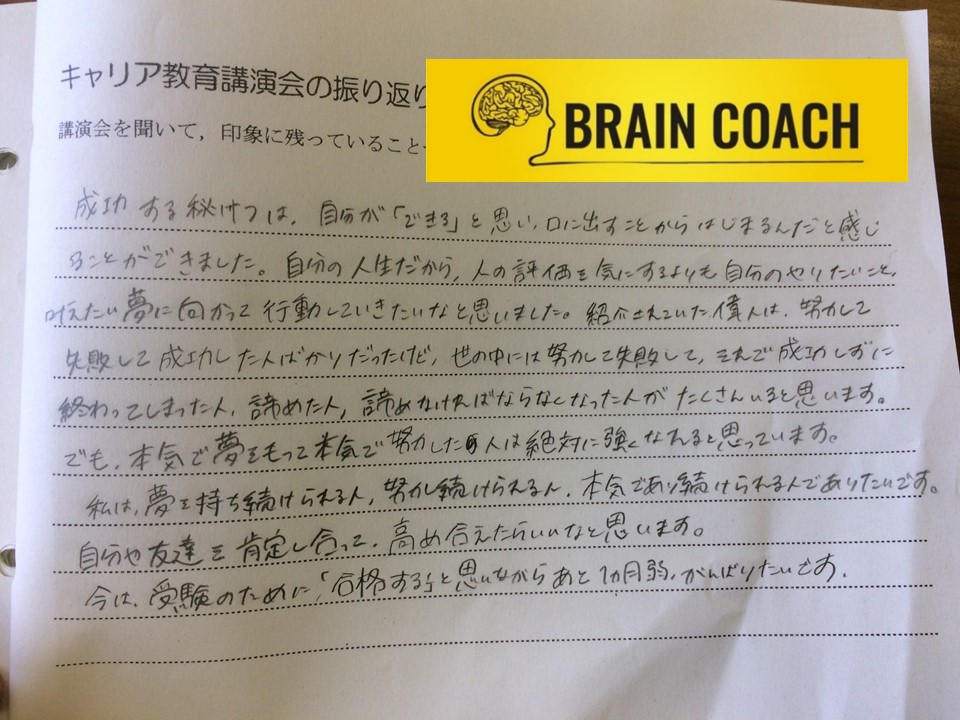 キャリア教育講演会の振り返り
BRAIN COACH
講演会を聞いて，印象に残っていること
成功する秘けつは，自分が「できる」と思い，口に出すことからはじまるんだと感じ
ることができました。自分の人生だから，人の評価を気にするよりも自分のやりたいこと，
叶えたい夢に向かって行動していきたいなと思いました。紹介されていた偉人は，努力して
失敗して成功した人ばかりだったけど，世の中には努力して失敗して，それで成功しずに
終わってしまった人，諦めた人，諦めなければならなくなった人がたくさんいると思います。
でも，本気で夢をもって本気で努力した人は絶対に強くなれると思っています。
私は，夢を持ち続けられる人，努力し続けられる人，本気であり続けられる人でありたいです。
自分や友達を肯定し合って，高め合えたらいいなと思います。
今は，受験のために，「合格する」と思いながらあと1カ月弱，がんばりたいです．